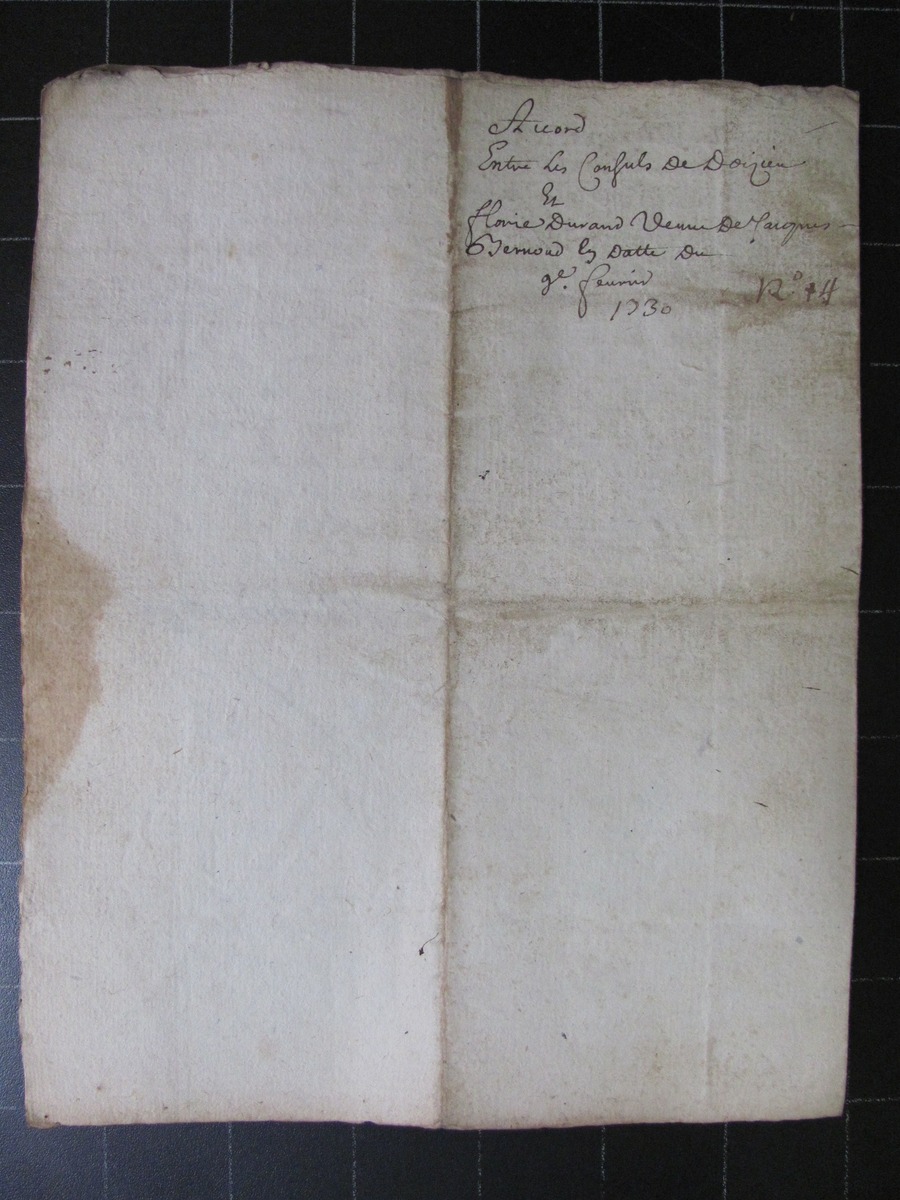 Accord
Entre les Consuls de Doizieu
Et
florie Durand Veuve de Jacques
Bernoud en datte du
9e. feurier
1730
N.o 14